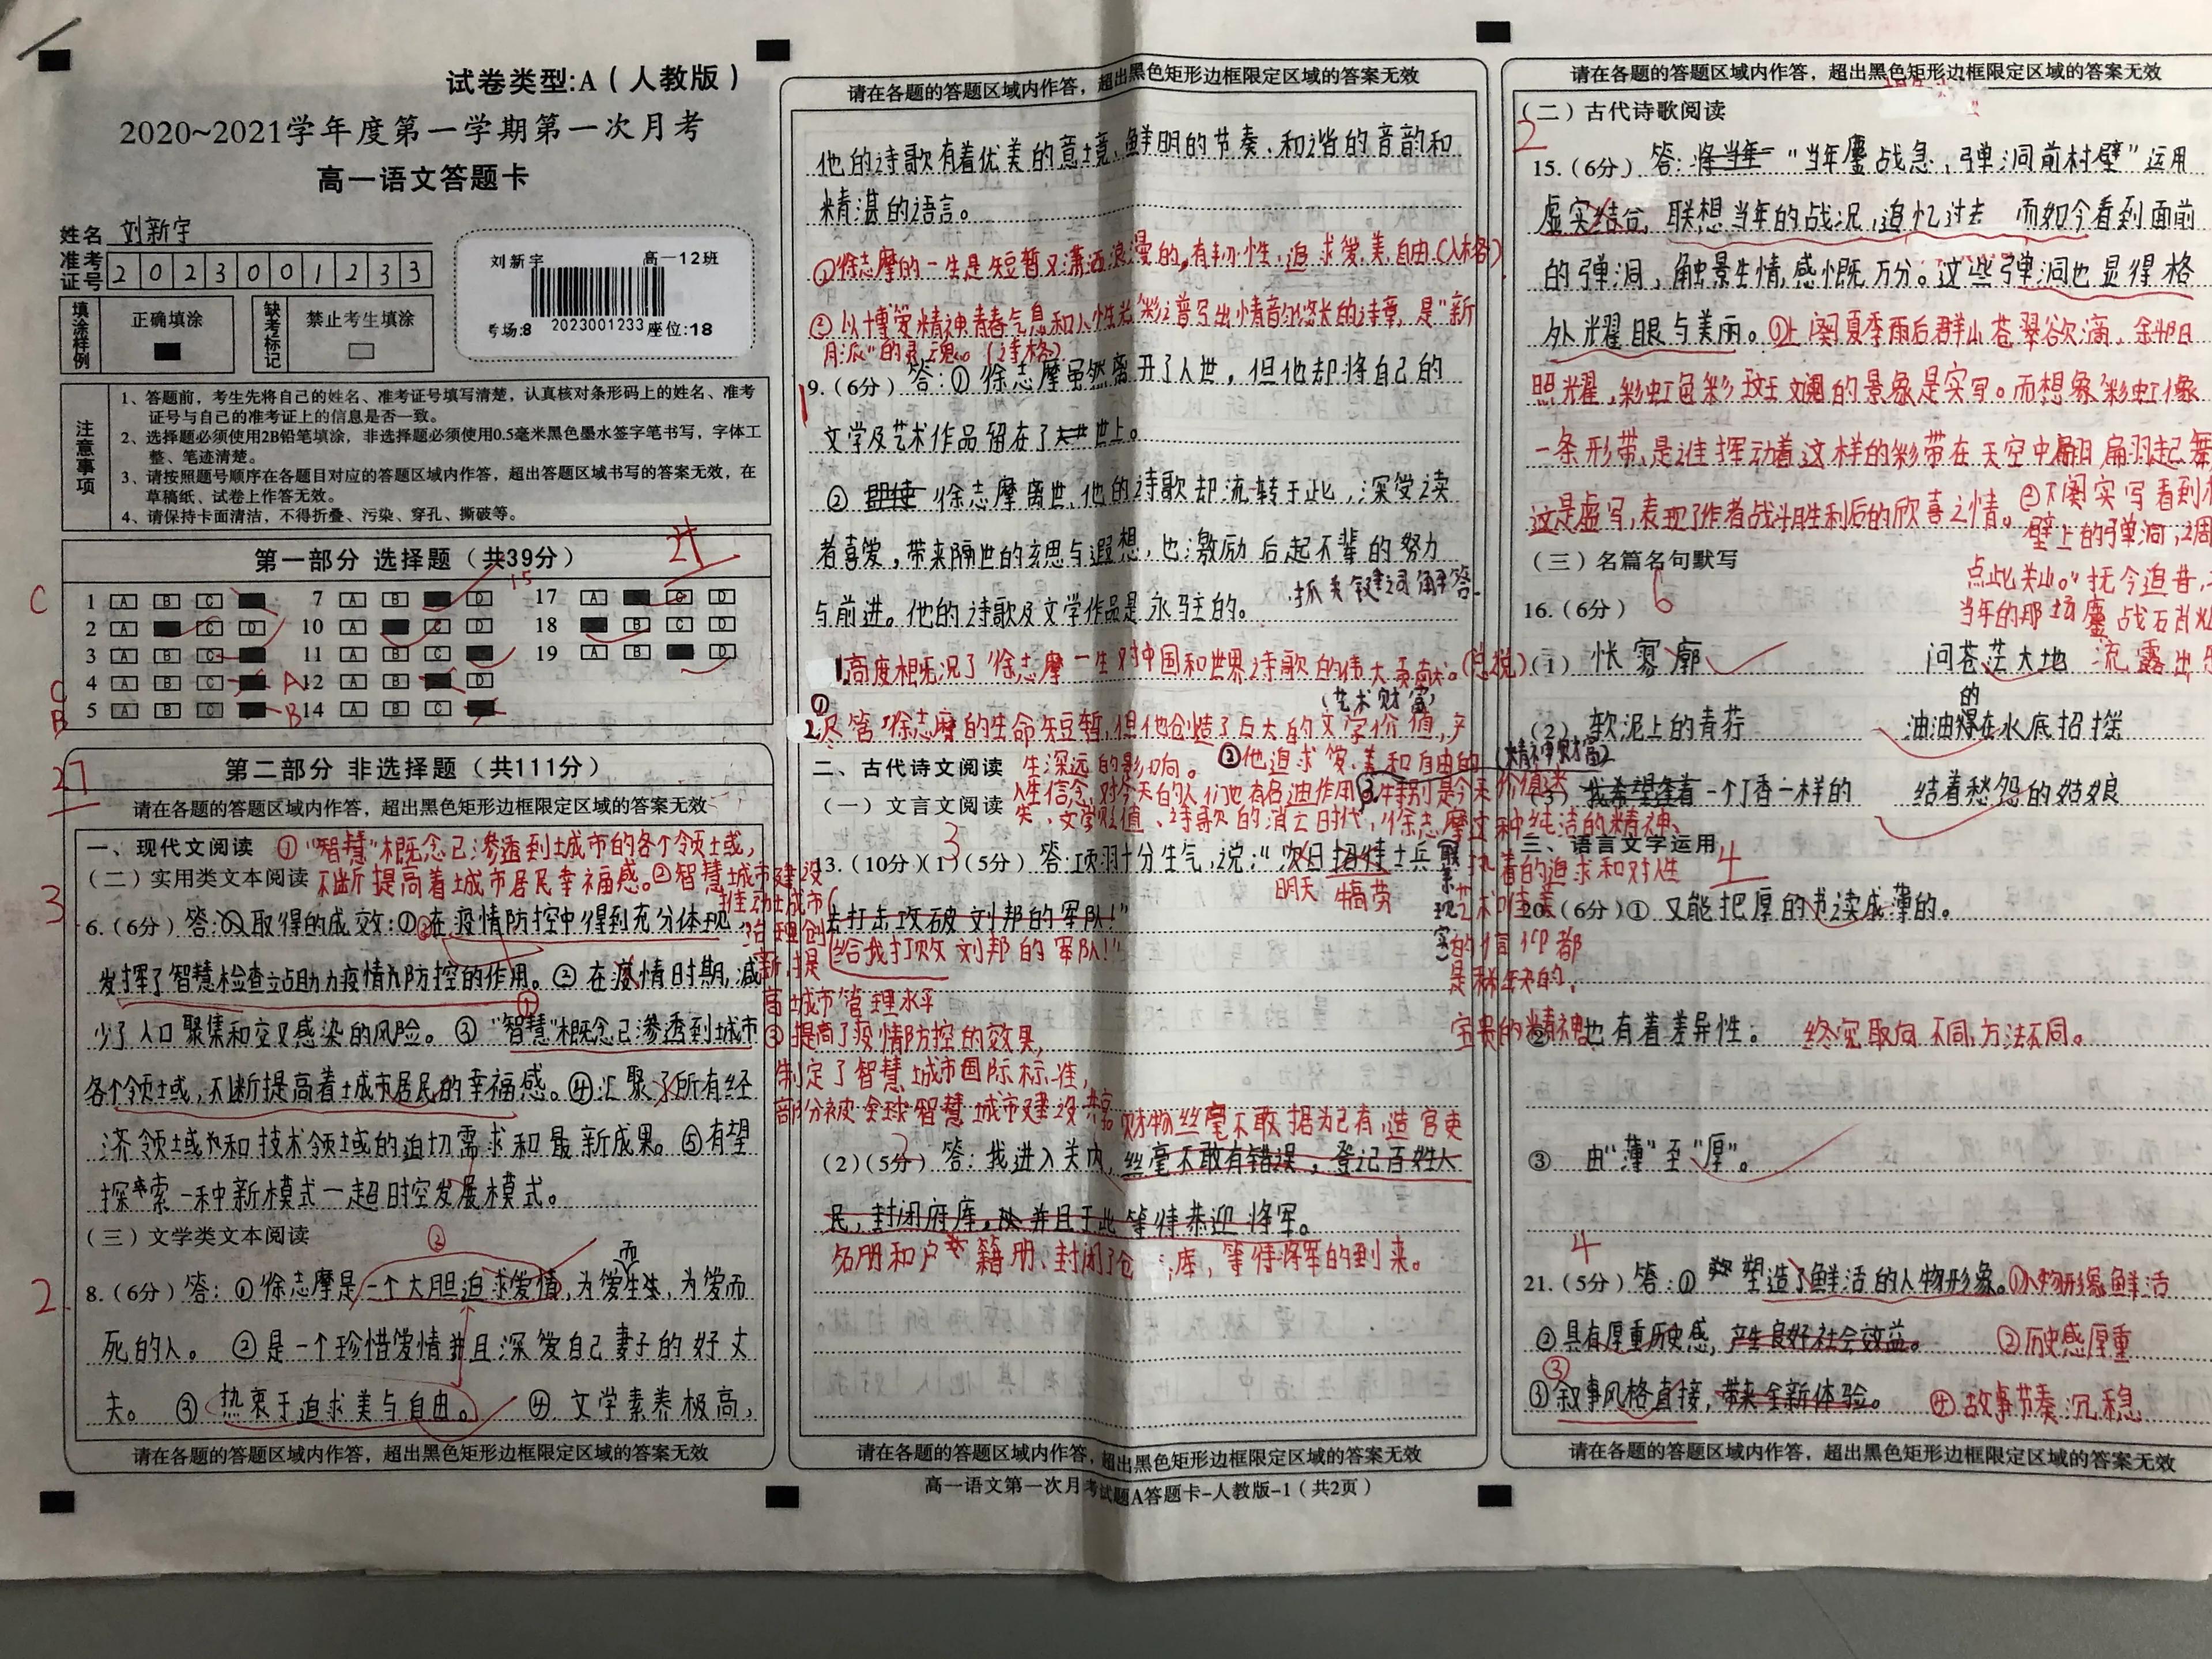 试卷类型:A（人教版）
2020~2021学年度第一学期第一次月考
高一语文答题卡
姓名 刘新宇
准考证号 2023001233
刘新宇 高一12班
考场:8 2023001233 座位:18
填涂样例 正确填涂
缺考标记 禁止考生填涂
注意事项
1、答题前，考生先将自己的姓名、准考证号填写清楚，认真核对条形码上的姓名、准考
证号与自己的准考证上的信息是否一致。
2、选择题必须使用2B铅笔填涂，非选择题必须使用0.5毫米黑色墨水签字笔书写，字体工
整、笔迹清楚。
3、请按照题号顺序在各题目对应的答题区域内作答，超出答题区域书写的答案无效，在
草稿纸、试卷上作答无效。
4、请保持卡面清洁，不得折叠、污染、穿孔、撕破等。
第一部分 选择题（共39分）
21
C
1 A B C 7 A B D 17 A C D
2 A C D 10 A C D 18 B C D
3 A B C 11 A B C 19 A B D
C 4 A B C A 12 A B D
B 5 A B C B 14 A B C
27
第二部分 非选择题（共111分）
请在各题的答题区域内作答，超出黑色矩形边框限定区域的答案无效
一、现代文阅读 ①"智慧"概念已渗透到城市的各个领域,
（二）实用类文本阅读 不断提高着城市居民幸福感。②智慧城市建设
推动城市
治理创
新,提
高城市管理水平
③提高了疫情防控的效果,
制定了智慧城市国际标准,
部分被全球智慧城市建设共享
3
6.（6分）答:取得的成效:①在疫情防控中得到充分体现,
发挥了智慧检查站助力疫情防控的作用。②在疫情时期,减
少了人口聚集和交叉感染的风险。③"智慧"概念已渗透到城市
各个领域,不断提高着城市居民的幸福感。④汇聚了所有经
济领域和技术领域的迫切需求和最新成果。⑤有望
探索一种新模式一超时空发展模式。
（三）文学类文本阅读
2
8.（6分）答:①徐志摩是一个大胆追求爱情,为爱而生,为爱而
死的人。②是一个珍惜爱情并且深爱自己妻子的好丈
夫。③热衷于追求美与自由。④文学素养极高,
请在各题的答题区域内作答，超出黑色矩形边框限定区域的答案无效
请在各题的答题区域内作答，超出黑色矩形边框限定区域的答案无效
他的诗歌有着优美的意境、鲜明的节奏、和谐的音韵和
精湛的语言。
①徐志摩的一生是短暂又潇洒浪漫的,有韧性,追求爱、美、自由(人格)
②以博爱精神青春气息和人性光彩之普写出情韵悠长的诗章,是"新
月派"的灵魂。(诗格)
1
9.（6分）答:①徐志摩虽然离开了人世,但他却将自己的
文学及艺术作品留在了世上。
②徐志摩离世,他的诗歌却流转于此,深受读
者喜爱,带来隔世的玄思与遐想,也激励后起不辈的努力
与前进。他的诗歌及文学作品是永驻的。
抓关键词解答.
1.高度概况了徐志摩一生对中国和世界诗歌的伟大贡献。(总括)
(艺术财富)
2.尽管徐志摩的生命短暂,但他创造了巨大的文学价值,产
生深远的影响。②他追求爱、美和自由的(精神财富)
人生信念,对今天的人们也有启迪作用③.特别是今天价值迷
失、文学贬值、诗歌的消亡时代,徐志摩这种纯洁的精神、
执着的追求和对性
艺术唯美
的信仰都
是稀缺的,
宝贵的精神
(联系现实)
二、古代诗文阅读
（一）文言文阅读
3
13.（10分）(1)（5分）答:项羽十分生气,说:"次日招待士兵
明天 犒劳
去打击攻破刘邦的军队!"
给我打败刘邦的军队!"
财物丝毫不敢据为己有,造官吏
2
(2)（5分）答:我进入关内,丝毫不敢有错误,登记百姓人
民,封闭府库,并且于此等待恭迎将军。
名册和户籍册、封闭了仓库,等待将军的到来。
请在各题的答题区域内作答，超出黑色矩形边框限定区域的答案无效
高一语文第一次月考试题A答题卡-人教版-1（共2页）
请在各题的答题区域内作答，超出黑色矩形边框限定区域的答案无效
（二）古代诗歌阅读
2
15.（6分）答:"当年鏖战急,弹洞前村壁"运用
虚实结合,联想当年的战况,追忆过去 而如今看到面前
的弹洞,触景生情,感慨万分。这些弹洞也显得格
外耀眼与美丽。①上阕夏季雨后群山苍翠欲滴,余阳日
照光耀,彩虹色彩斑斓的景象是实写。而想象彩虹像
一条彩带,是谁挥动着这样的彩带在天空中翩翩起舞
这是虚写,表现了作者战斗胜利后的欣喜之情。②下阕实写看到
壁上的弹洞,
（三）名篇名句默写
点此关山。"抚今追昔,
当年的那场鏖战
流露出
16.（6分）6
(1) 怅寥廓 问苍茫大地
(2) 软泥上的青荇 油油的在水底招摇
(3) 一个丁香一样的 结着愁怨的姑娘
三、语言文字运用
4
20.（6分）① 又能把厚的书读成薄的。
② 也有着差异性。 终究取向不同,方法不同。
③ 由"薄"至"厚"。
4
21.（5分）答:① 塑造了鲜活的人物形象。①人物形象鲜活
②具有厚重历史感,产生良好社会效益。 ②历史感厚重
③叙事风格直接,带来全新体验。 ④故事节奏沉稳
请在各题的答题区域内作答，超出黑色矩形边框限定区域的答案无效